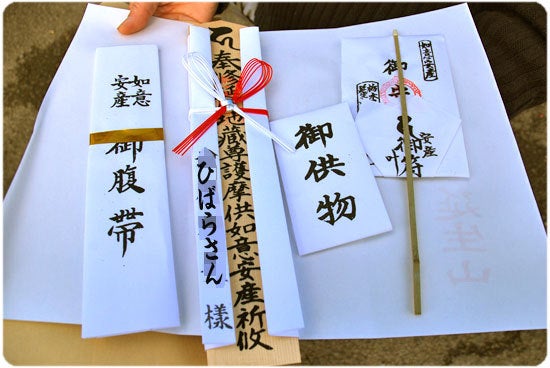 如意
安産
御腹帯
奉修 地蔵尊護摩供如意安産祈攸
ひばらさん 様
御供物
如意安産
御
安産
延生山